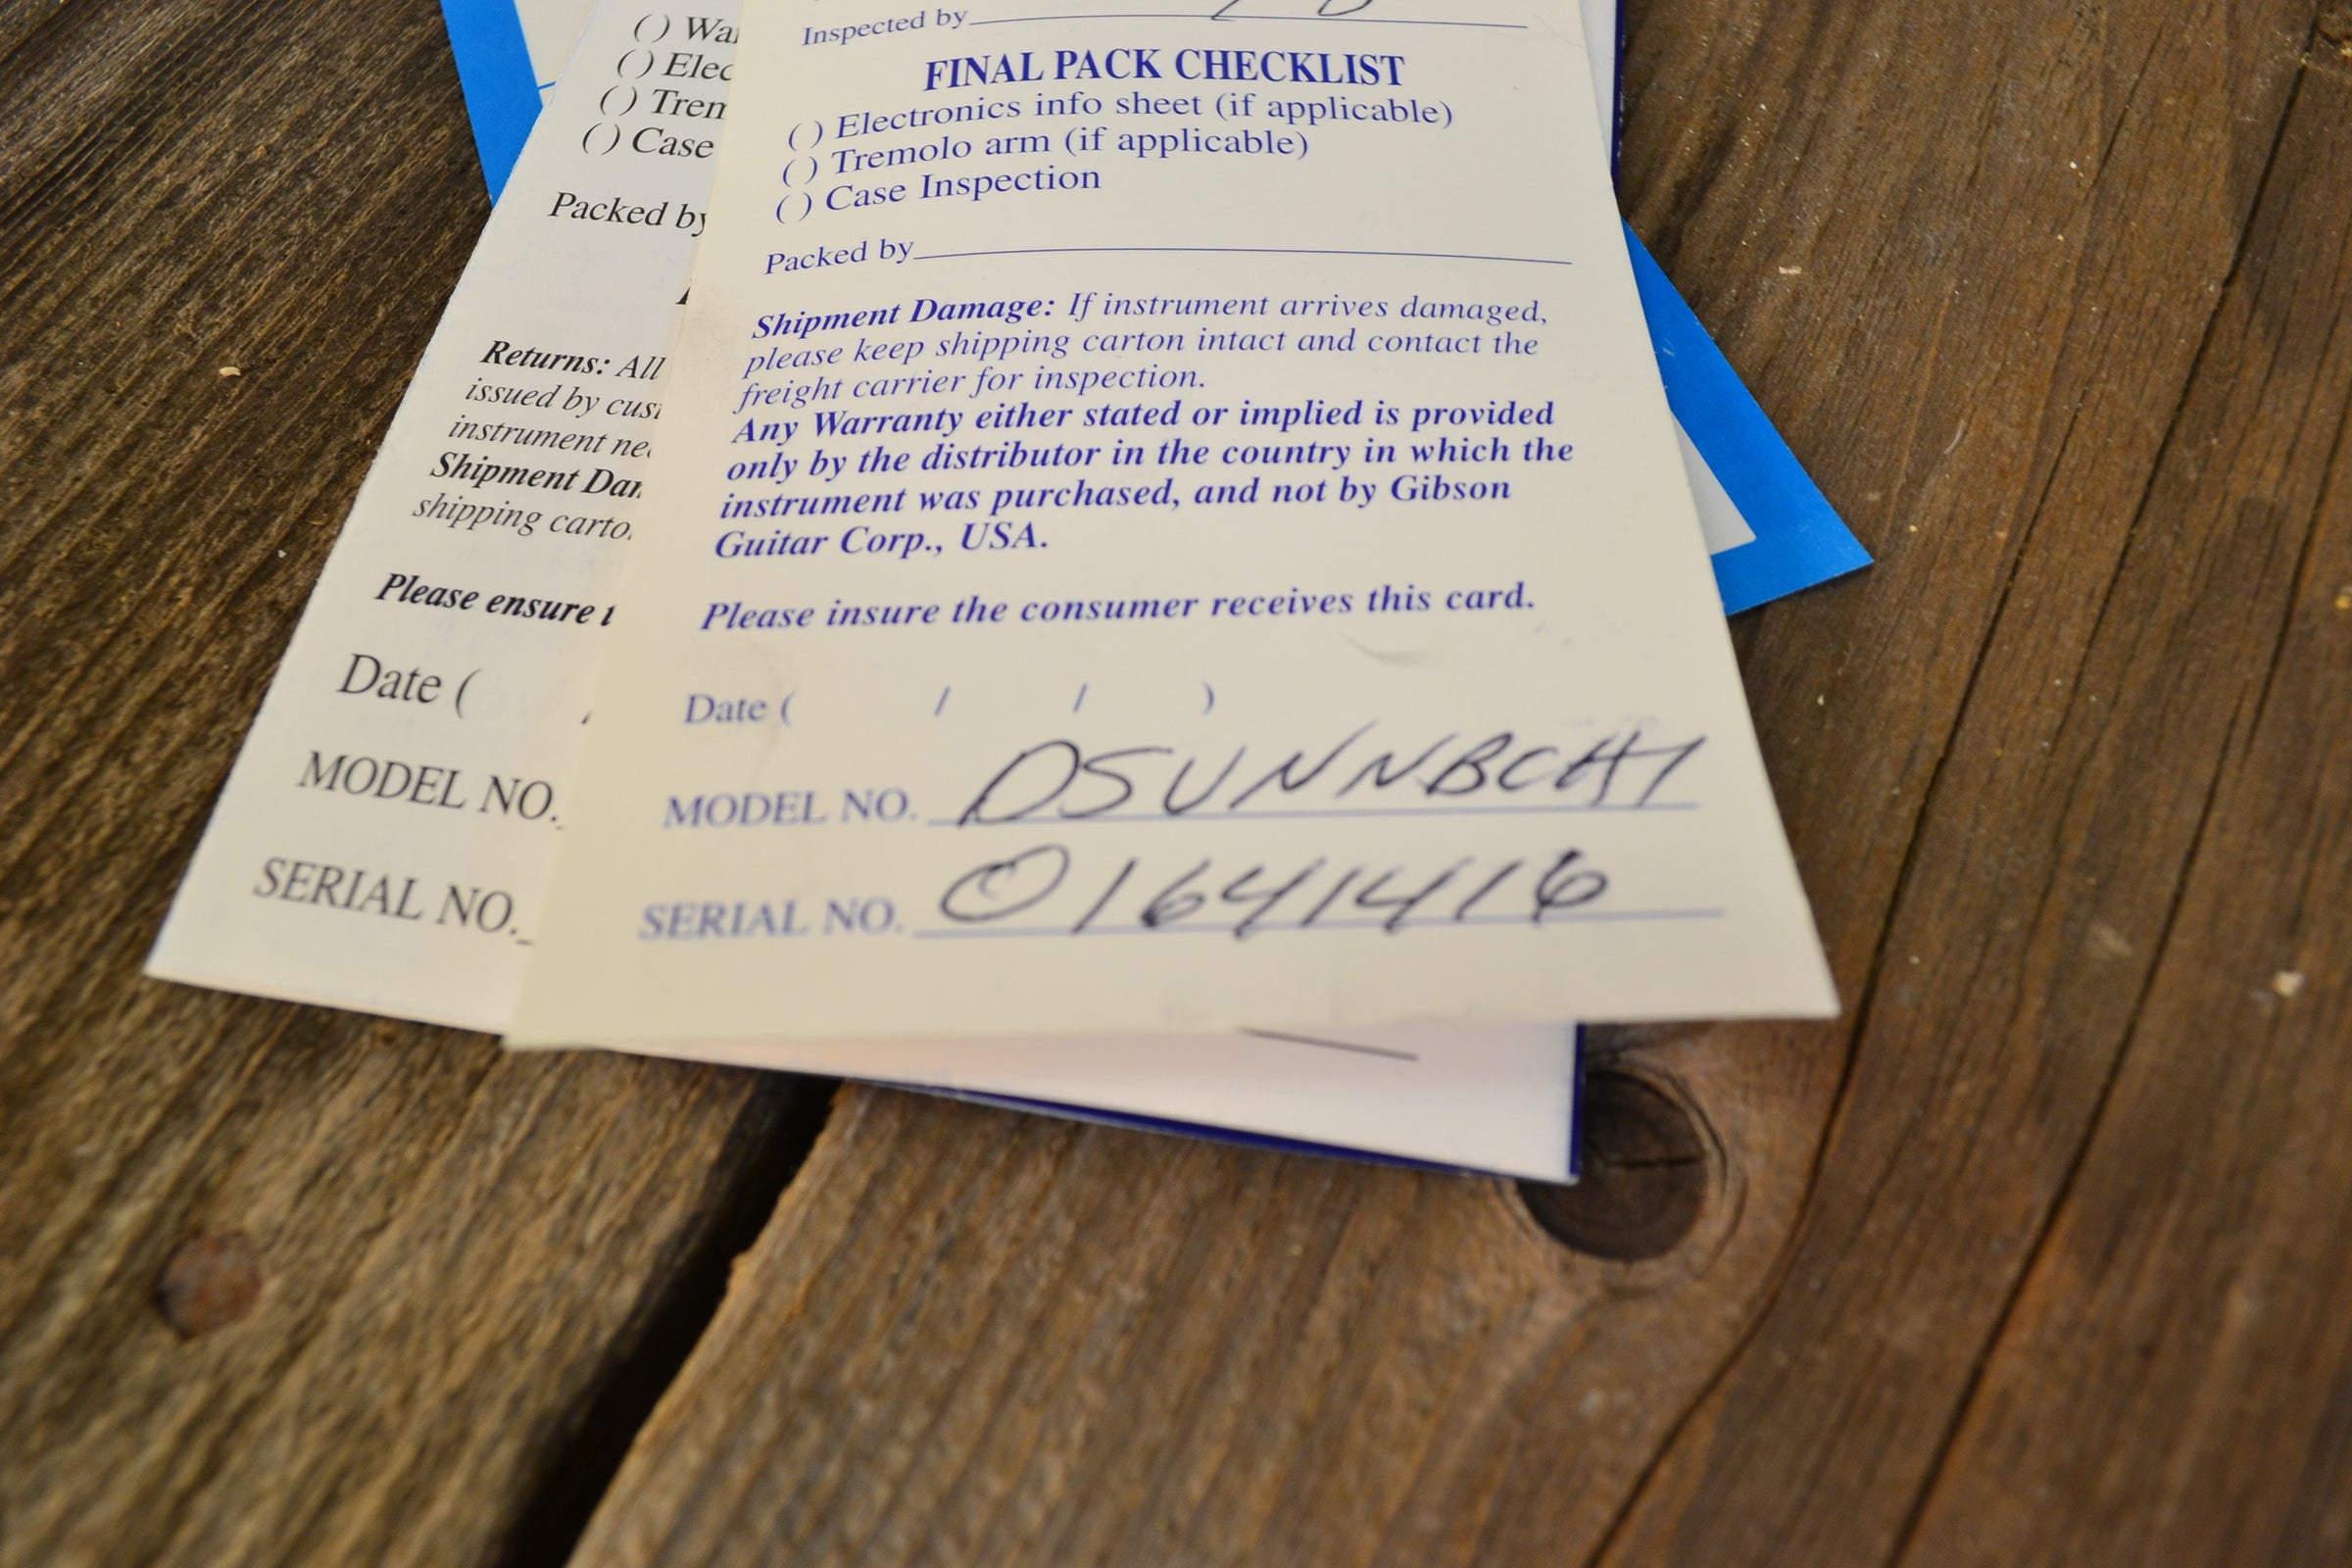 ( ) Wa
( ) Elec
( ) Trem
( ) Case
Packed by
Returns: All
issued by cus
instrument ne
Shipment Dam
shipping carto
Please ensure t
Date (
MODEL NO.
SERIAL NO.
Inspected by
FINAL PACK CHECKLIST
( ) Electronics info sheet (if applicable)
( ) Tremolo arm (if applicable)
( ) Case Inspection
Packed by
Shipment Damage: If instrument arrives damaged,
please keep shipping carton intact and contact the
freight carrier for inspection.
Any Warranty either stated or implied is provided
only by the distributor in the country in which the
instrument was purchased, and not by Gibson
Guitar Corp., USA.
Please insure the consumer receives this card.
Date ( / / )
MODEL NO. DSUNNBCH1
SERIAL NO. 01641416